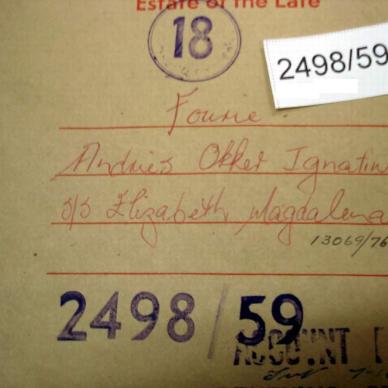 Estate of the Late
18
2498/59
Fourie
Andries Okker Ignatius
s/s Elizabeth Magdalena
13069/76
2498/59
ACCOUNT